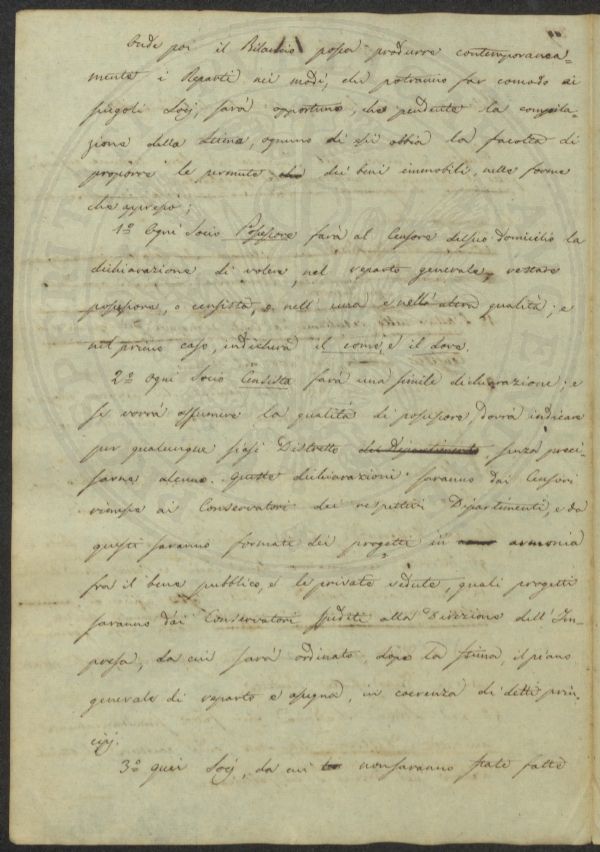 Onde poi il Bilancio possa produrre contemporanea=
mente i Reparti nei modi, che potranno far comodo ai
singoli Socj, sarà opportuno, che pendente la compila=
zione della Stima, ognuno di essi abbia la facoltà di
proporre le permute dei beni immobili, nelle forme
che appresso;
1.º Ogni Socio Possessore farà al Censore del suo domicilio la
dichiarazione di volere, nel reparto generale, restare
possessore, o censista, o nell' una e nell'altra qualità; e
nel primo caso, indicherà il come, e il dove.
2.º Ogni Socio Censista farà una simile dichiarazione; e
se vorrà assumere la qualità di possessore, dovrà indicare
per qualunque siasi Distretto del Dipartimento, senza preci=
sarne alcuno. Queste dichiarazioni saranno dai Censori
rimesse ai Conservatori dei respettivi Dipartimenti, e da
questi saranno formati dei progetti in armonia
fra il bene pubblico, e le private vedute, quali progetti
saranno dai Conservatori spediti alla Direzione dell'Im=
presa, da cui sarà ordinato, dopo la stima, il piano
generale di reparto e assegna, in coerenza di detti prin=
cipj.
3.º Quei Socj, da cui non saranno state fatte